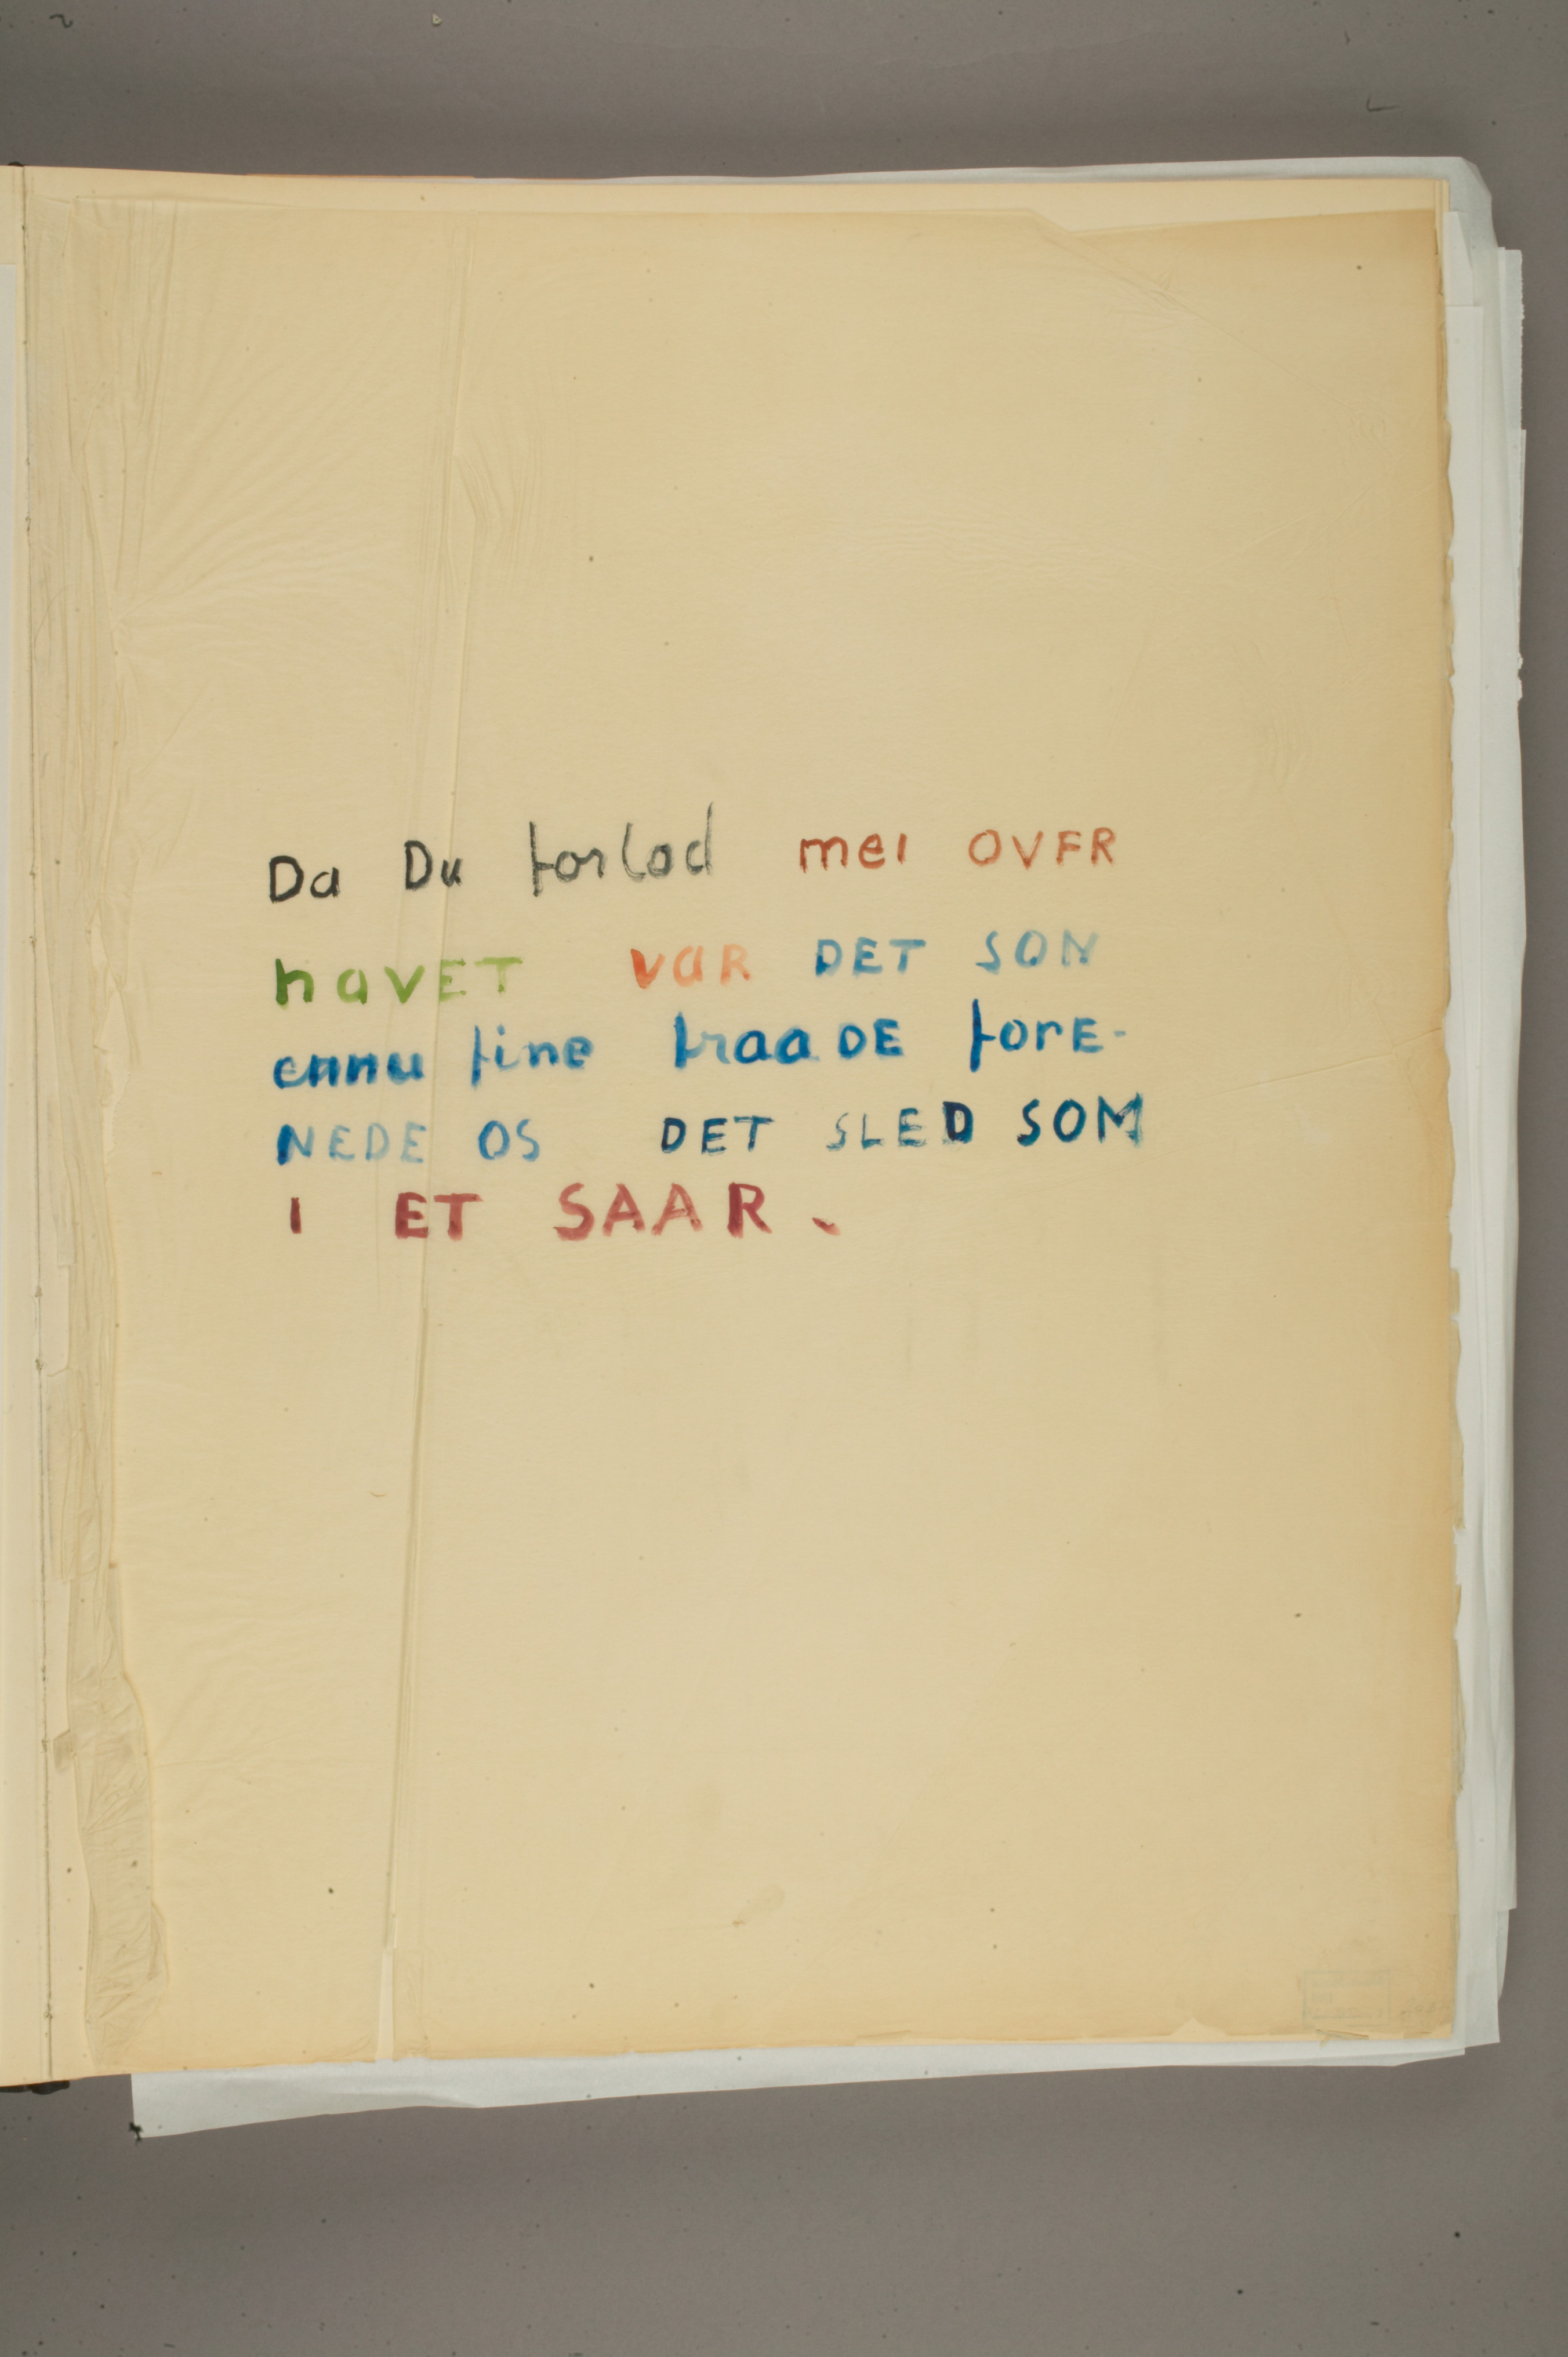 Da Du forlod mei OVER
havET vaR DET SON
ennu fine traaDE forE-
NEDE OS DET SLED SOM
I ET SAAR.